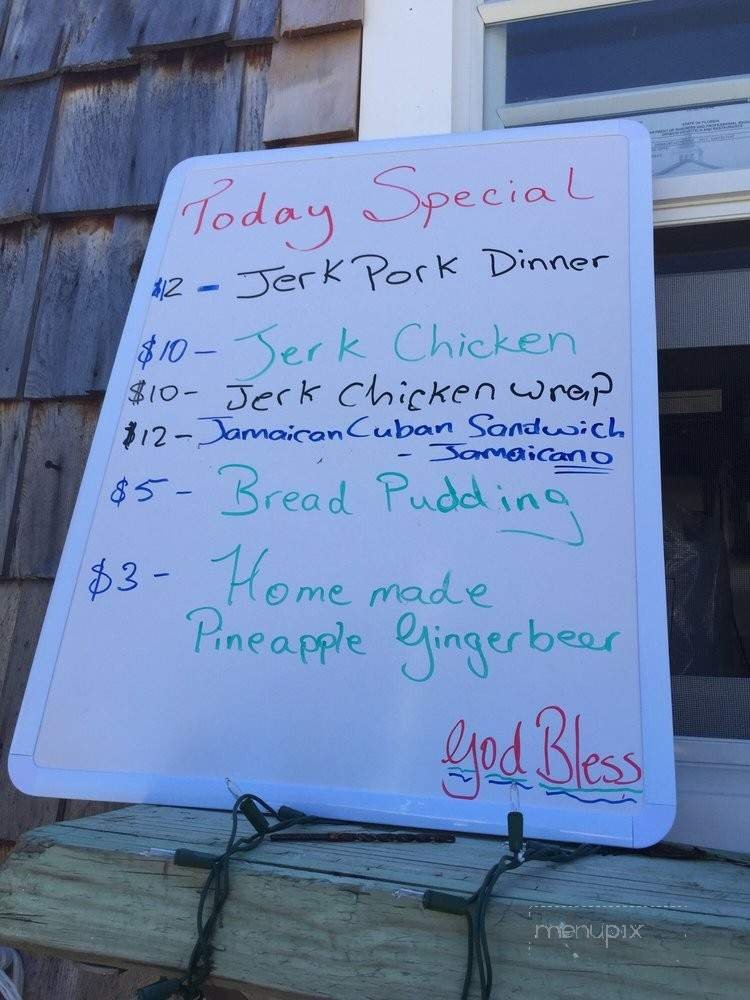 Today Special
$12 - Jerk Pork Dinner
$10 - Jerk Chicken
$10 - Jerk Chicken wrap
$12 - Jamaican Cuban Sandwich
- Jamaicano
$5 - Bread Pudding
$3 - Home made
Pineapple Gingerbeer
God Bless
STATE OF FLORIDA
menupix